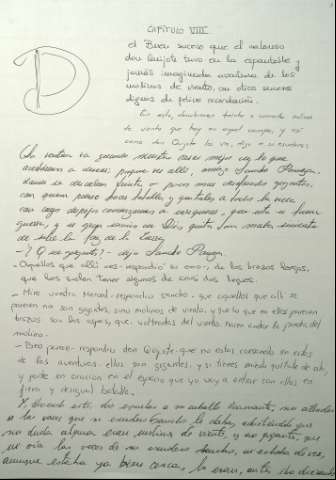 CAPITULO VIII
D
el Buen suceso que el valeroso
don Quijote tuvo en la espantable y
jamás imaginada aventura de los
molinos de viento, con otros sucesos
dignos de felice recordación.
En esto, descubrieron treinta o cuarenta molinos
de viento que hay en aquel campo, y así
como don Quijote los vio, dijo a su escudero:
ventura va guiando nuestras cosas mejor de lo que
a desear, porque ves allí, amigo Sancho Panza,
donde se descubren treinta, o pocos más desaforados gigantes,
con quien pienso hacer batalla, y quitarles a todos la vida
con cuyo despojo comenzaremos a enriquecer, que esta es buena
guerra, y es gran servicio de Dios quitar tan mala simiente
de sobre la faz de la tierra.
-¿? - dijo Sancho Panza.
- Aquellos que allí ves -respondió su amo-, de los brazos largos,
que los suelen tener algunos de casi dos leguas.
- Mire vuestra merced -respondió Sancho- que aquellos que allí se
parecen no son gigantes, sino molinos de viento, y que lo que en ellos parecen
brazos son las aspas, que, volteadas del viento, hacen andar la piedra del
molino.
- Bien parece -respondió don Quijote- que no estás cursado en esto
de las aventuras: ellos son gigantes; y si tienes miedo quítate de ahí,
y ponte en oración en el espacio que yo voy a entrar con ellos en
fiera y desigual batalla.
Y diciendo esto, dio espuelas a su caballo Rocinante, sin atender
a las voces que su escudero Sancho le daba, advirtiendo que
sin duda alguna eran molinos de viento, y no gigantes, que
ni oía las voces de su escudero Sancho, ni echaba de ver,
aunque estaba ya bien cerca, lo que eran, antes iba diciendo